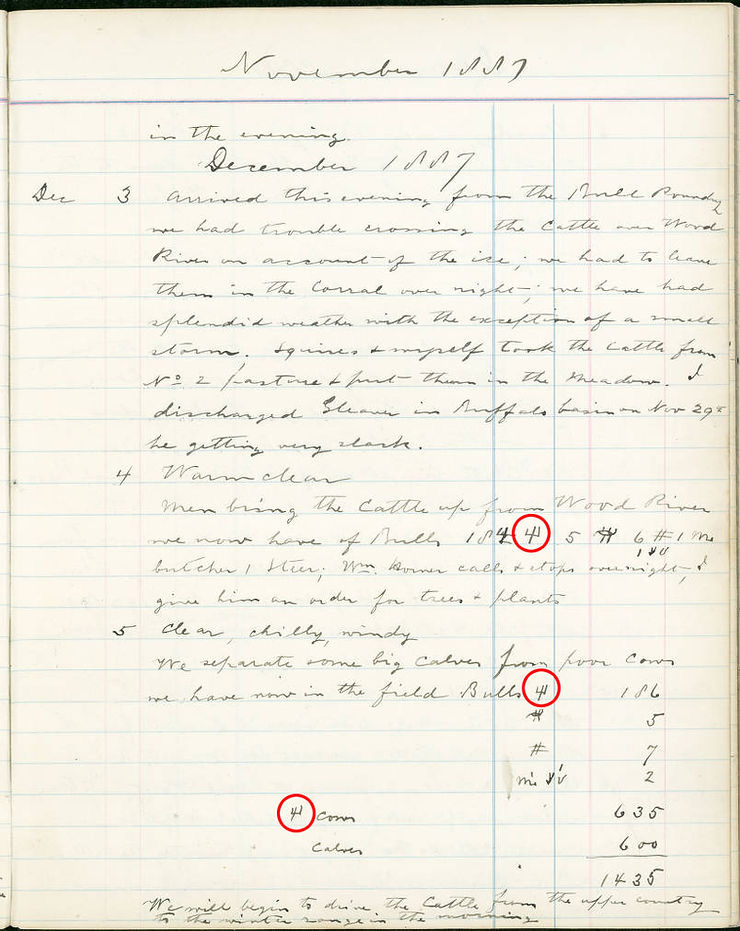 November 1887
in the evening.
December 1887
Dec 3 Arrived this evening from the Bull Roundup
we had trouble crossing the Cattle over Wood
River on account of the ice; we had to leave
them in the Corral over night; we have had
splendid weather with the exception of a small
storm. Squires & myself took the Cattle from
No. 2 pasture & put them in the Meadow. I
discharged Gleaver in Buffalo basin on Nov 29th
he getting very slack.
4 Warm clear
Men bring the Cattle up from Wood River
we now have of Bulls 184 5 6 # 1 Mc
butcher 1 Steer; Wm. Horner calls & stops over night, I
give him an order for trees & plants
5 Clear, chilly, windy
We separate some big Calves from poor Cows
we have now in the field Bulls 186
5
# 7
Mc 2
Cows 635
Calves 600
1435
We will begin to drive the Cattle from the upper country
to the winter range in the morning